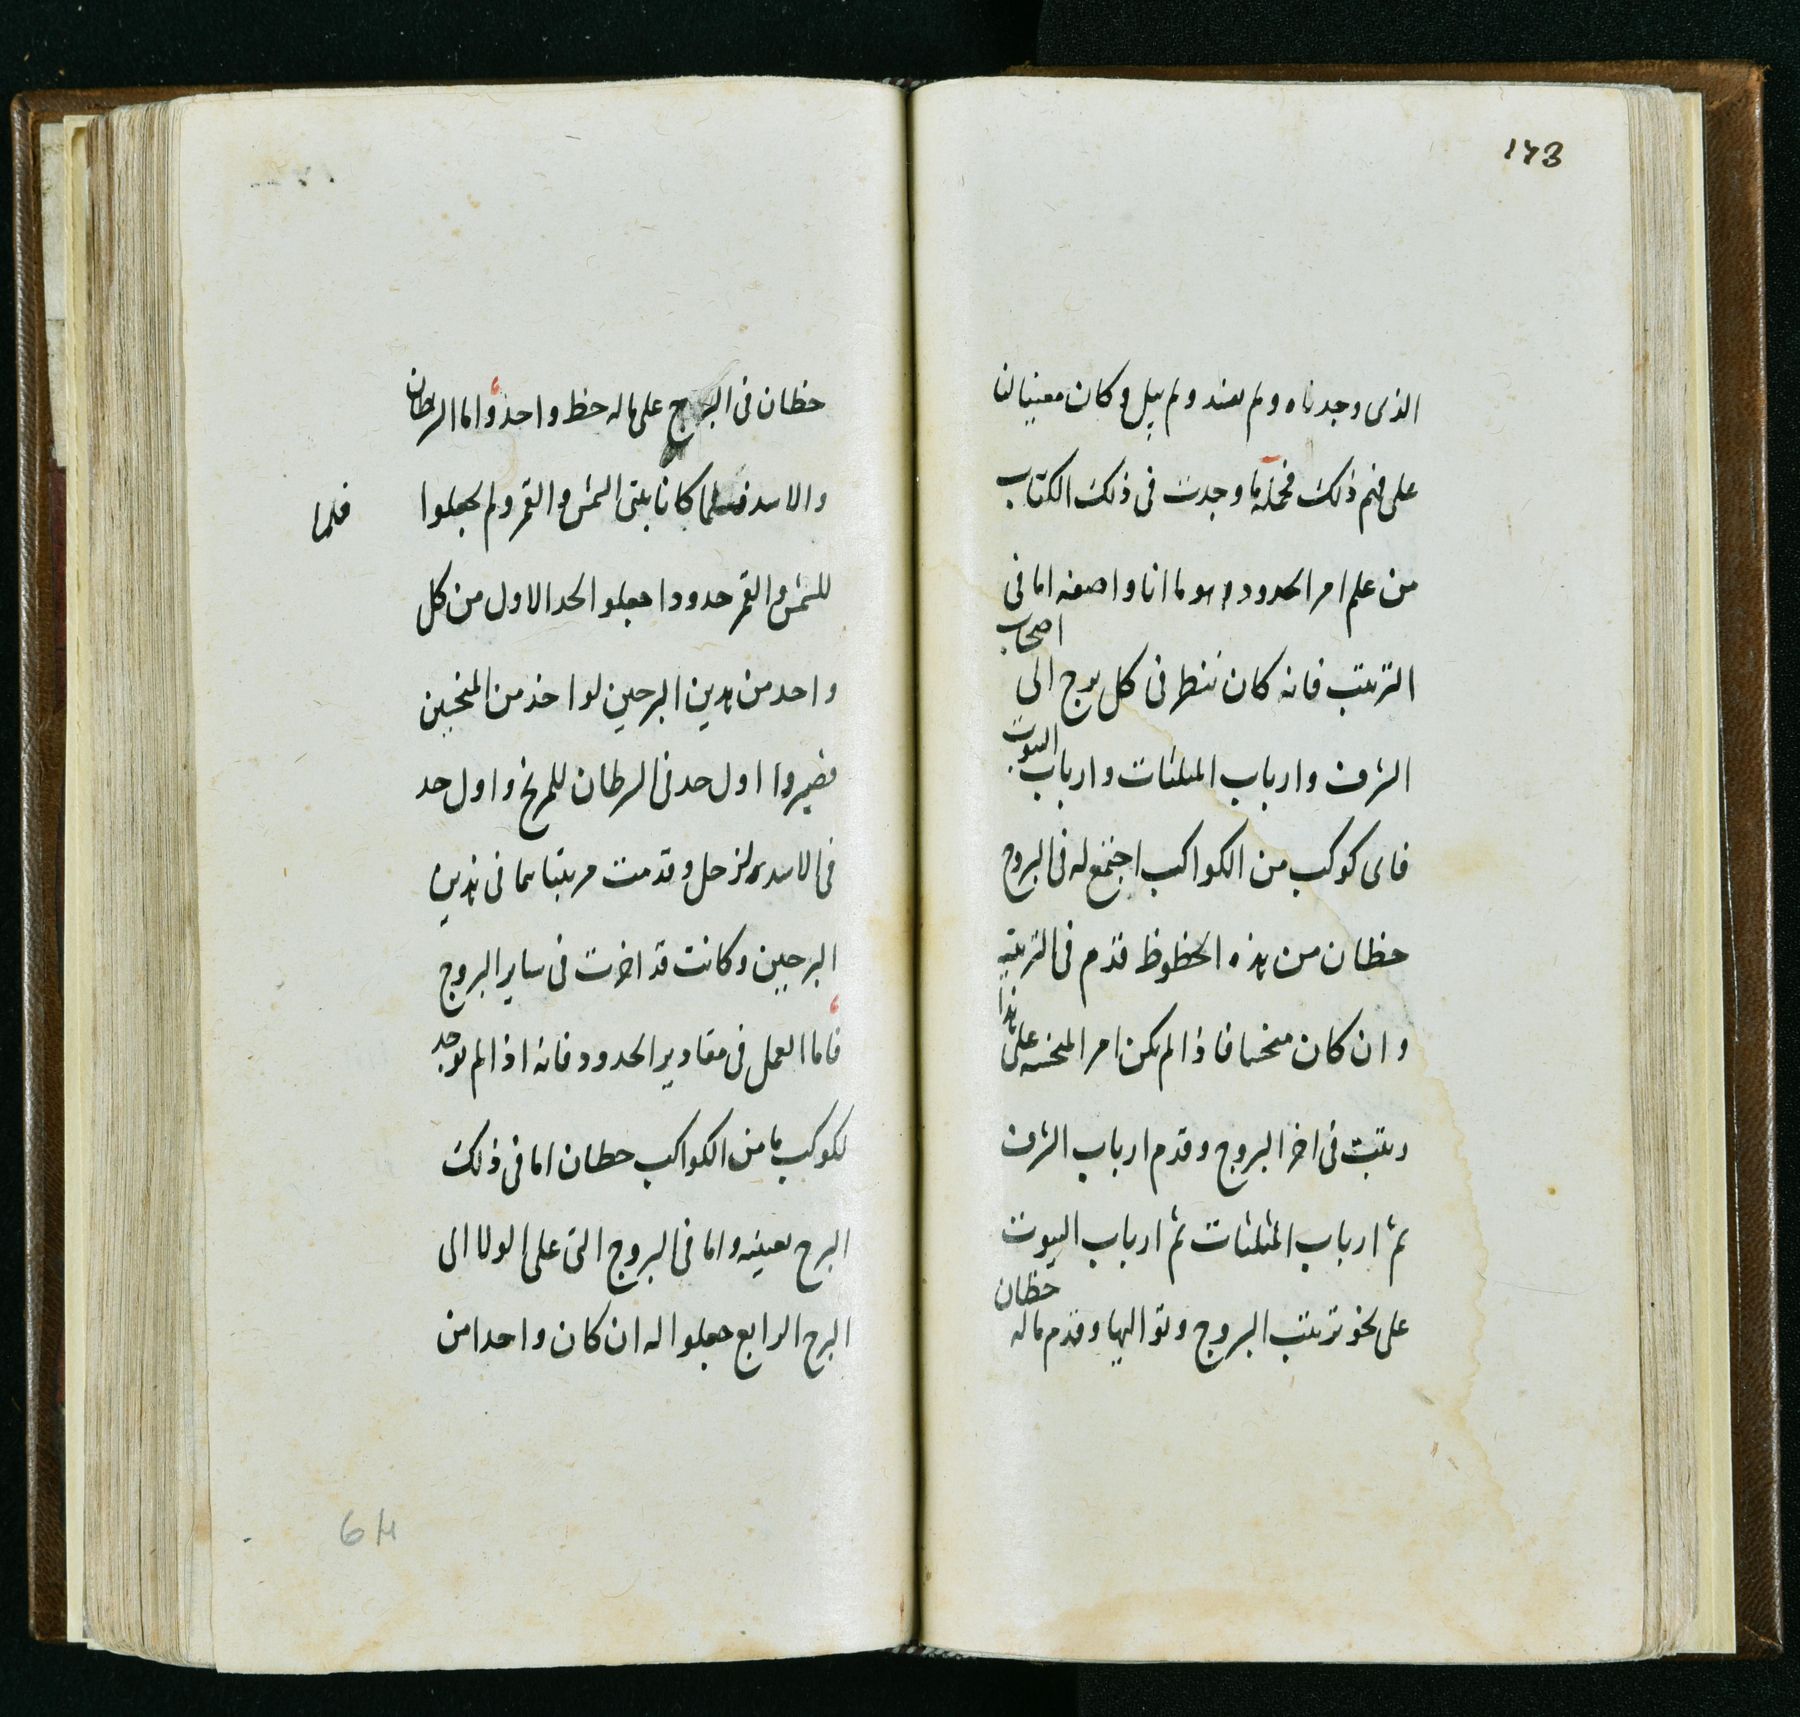 ١٧3
الذى وجدناه ولم يفسد ولم يبل وكان معينا لنا
على فهم ذلك فجملة ما وجدت فى ذلك الكتاب
من علم امر الحدود وهو ما انا واصفه اما فى
الترتيب فانه كان ينظر فى كل برج الى اصحاب
الشرف وارباب المثلثات وارباب البيوت
فاى كوكب من الكواكب اجتمع له فى البروج
حظان من هذه الحظوظ قدم فى الترتيب
وان كان منحسا فاذا لم يكن امر المنحسه على هذا
رتبت فى اخر البروج وقدم ارباب الشرف
ثم ارباب المثلثات ثم ارباب البيوت
على نحو ترتيب البروج وتواليها وقدم ماله حظان
حظان فى البرج على ماله حظ واحد واما السرطان
والاسد فلما كانا بيتى الشمس والقمر ولم يجعلوا
فلما
للشمس والقمر حدودا جعلوا الحد الاول من كل
واحد من هذين البرجين لواحد من المنحسين
فصيروا اول حد فى السرطان للمريخ واول حد
فى الاسد لزحل وقدمت مرتبتاهما فى هذين
البرجين وكانت قد اخرت فى ساير البروج
فاما العمل فى مقادير الحدود فانه اذا لم يوجد
لكوكب ما من الكواكب حظان اما فى ذلك
البرج بعينه واما فى البروج التى على الولا الى
البرج الرابع جعلوا له ان كان واحدا من
64